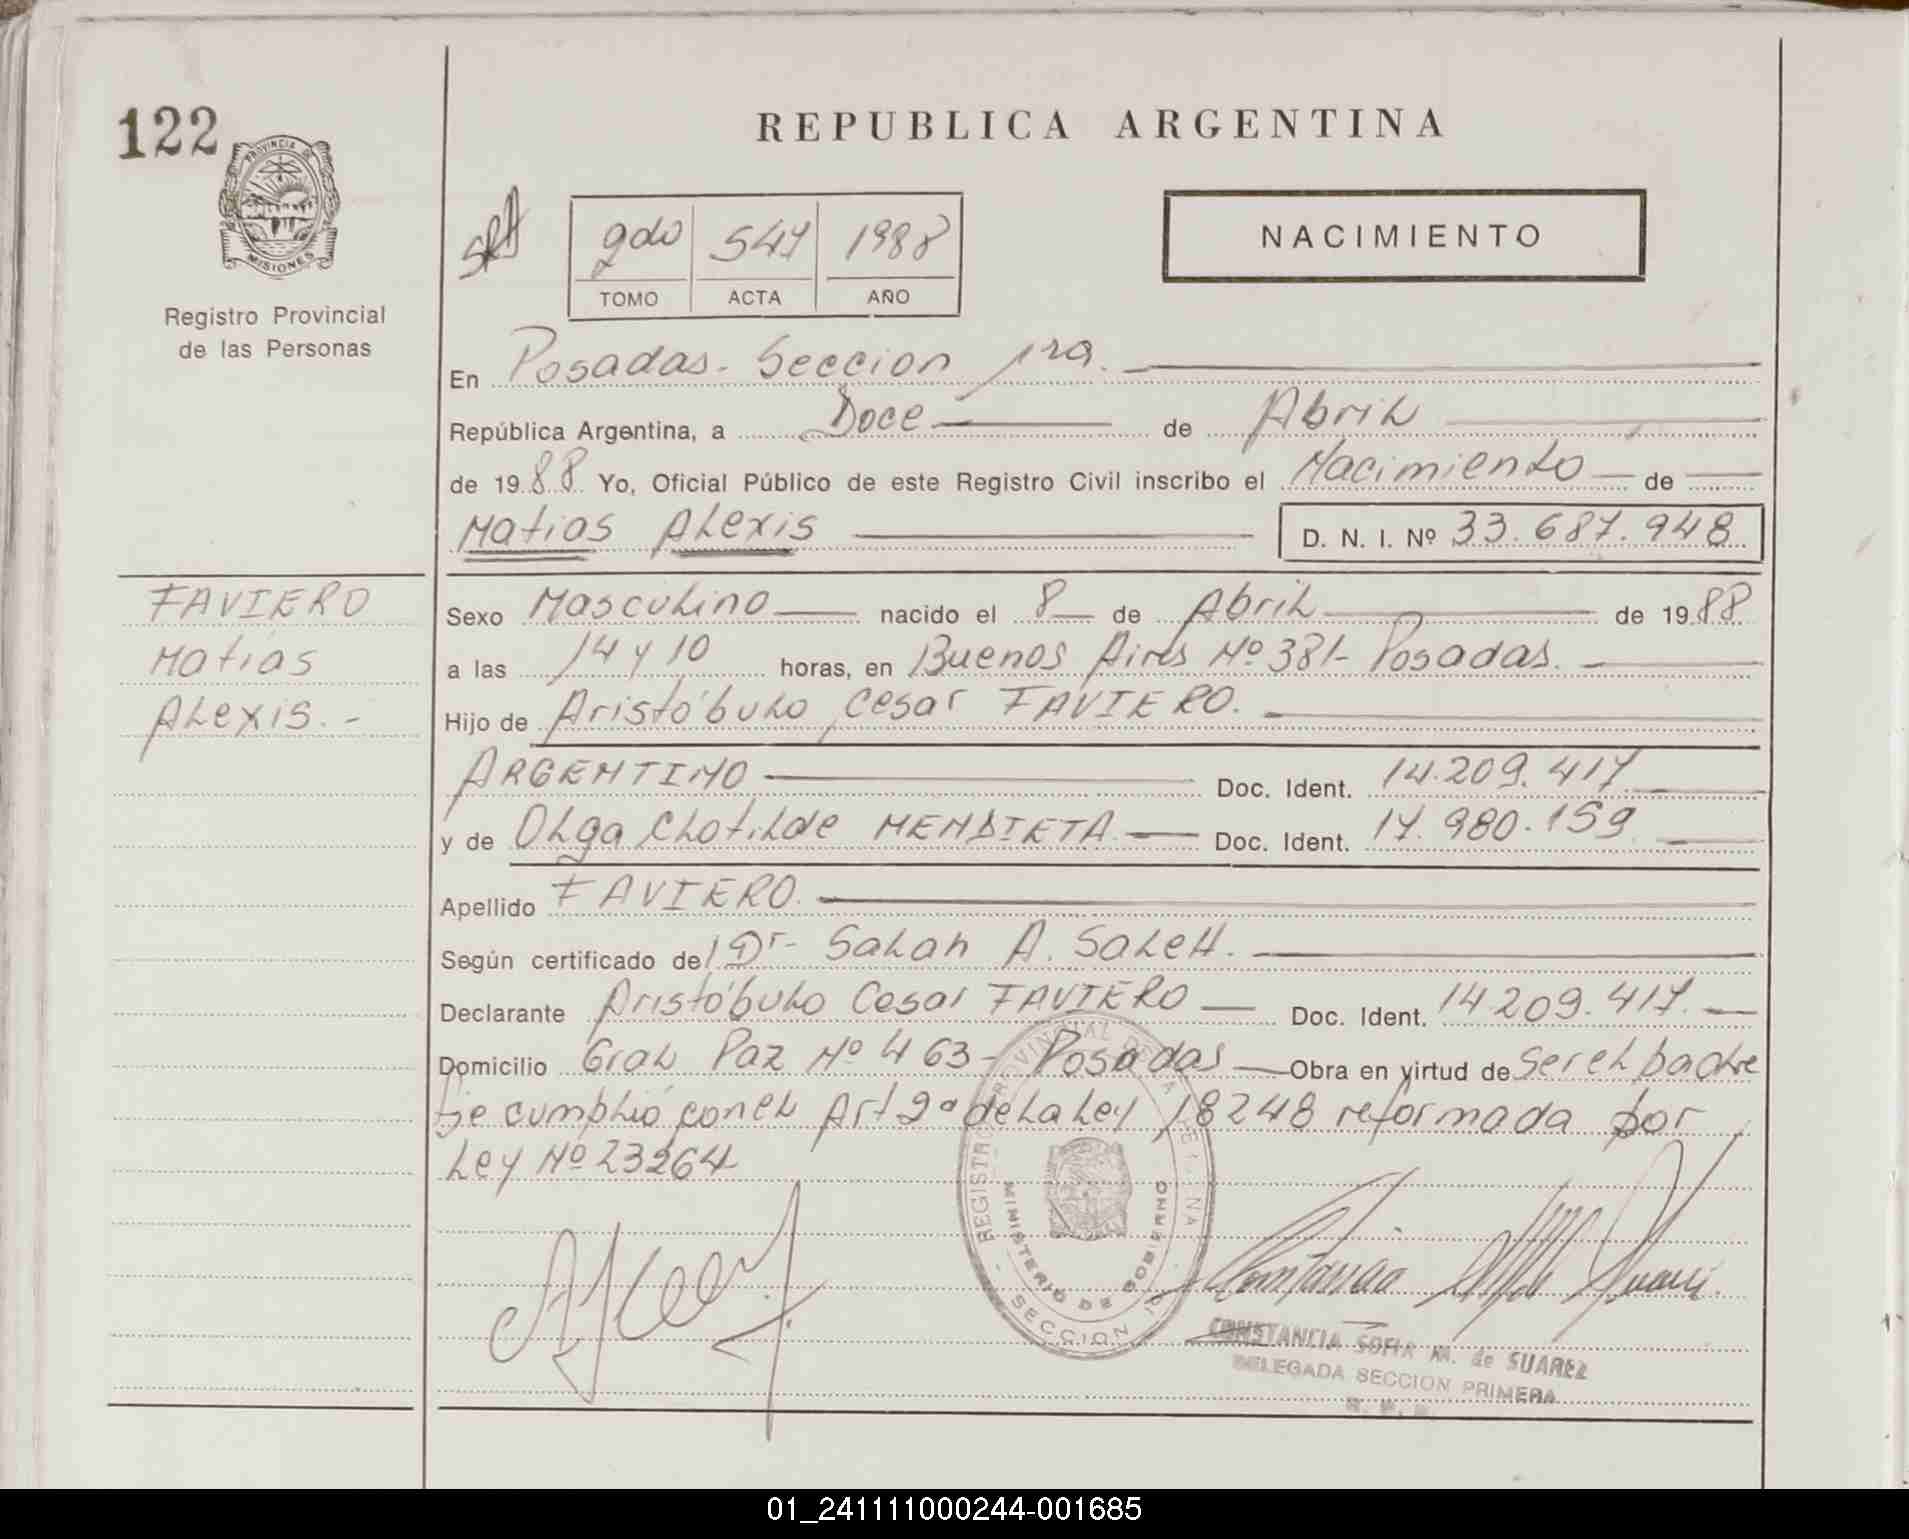 122
PROVINCIA DE
MISIONES
Registro Provincial
de las Personas
REPUBLICA ARGENTINA
2do 547 1988
TOMO ACTA AÑO
NACIMIENTO
En Posadas. Seccion 1ra.
República Argentina, a Doce de Abril
de 1988 Yo, Oficial Público de este Registro Civil inscribo el Nacimiento de
Matias Alexis D. N. I. Nº 33.687.948
FAVIERO
Matias
Alexis.-
Sexo Masculino nacido el 8 de Abril de 1988
a las 14 y 10 horas, en Buenos Aires Nº 381- Posadas.
Hijo de Aristóbulo Cesar FAVIERO.
ARGENTINO Doc. Ident. 14.209.417
y de Olga Clotilde MENDIETA Doc. Ident. 17.980.159
Apellido FAVIERO.
Según certificado del Dr- Salah A. SaleH.
Declarante Aristóbulo Cesar FAVIERO Doc. Ident. 14209.417.
Domicilio Gral Paz Nº 463- Posadas Obra en virtud de ser el padre
Se cumplió con el Art 2º de la Ley 18248 reformada por
Ley Nº 23264
REGISTRO PROVINCIAL DE LAS PERSONAS
MINISTERIO DE GOBIERNO
SECCION
CONSTANCIA SOFIA M. de SUAREZ
DELEGADA SECCION PRIMERA
R. P. P.
01_241111000244-001685